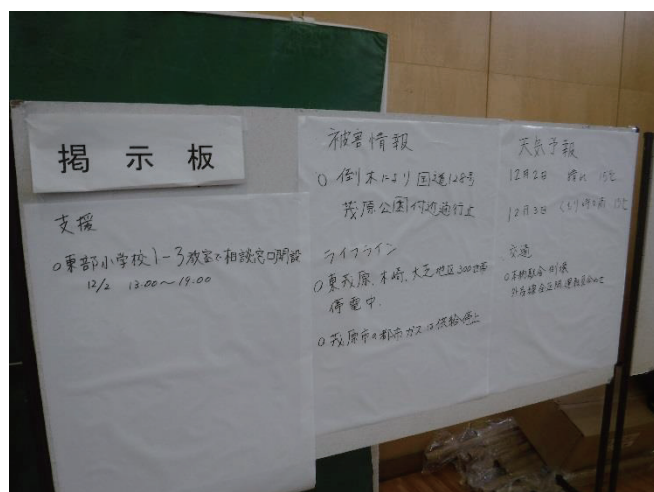 掲示板
支援
○東部小学校1-3教室で相談窓口開設
12/2 13:00～19:00
被害情報
○倒木により国道128号
茂原公園付近通行止
ライフライン
○東茂原、木崎、大芝地区300世帯
停電中.
○茂原市の都市ガスは供給停止
天気予報
12月2日 晴れ 15℃
12月3日 くもり時々雨
交通
○本納駅舎倒壊
外房線全区間運転見合わせ